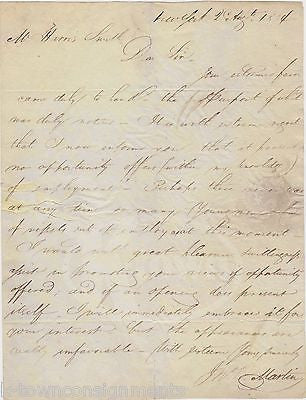 New York 2d Augt 18
Mr Harris Smith
Dear Sir
Your esteemed favor
came duly to hand - the purport of which
was duly noticed - It is with extreme regret
that I now inform you that at present
no opportunity offers (within my knowledge)
of employment - Perhaps there never was
at any time so many (Young men
of respects out of employ as at this moment
I would with great pleasure
in promoting your opportunity
offered; and if an opening does present
itself, I will immediately embrace it for
your interest; but the appearances are
really unfavorable - With esteem Yours Sincerely
Martin
k-townconsignments